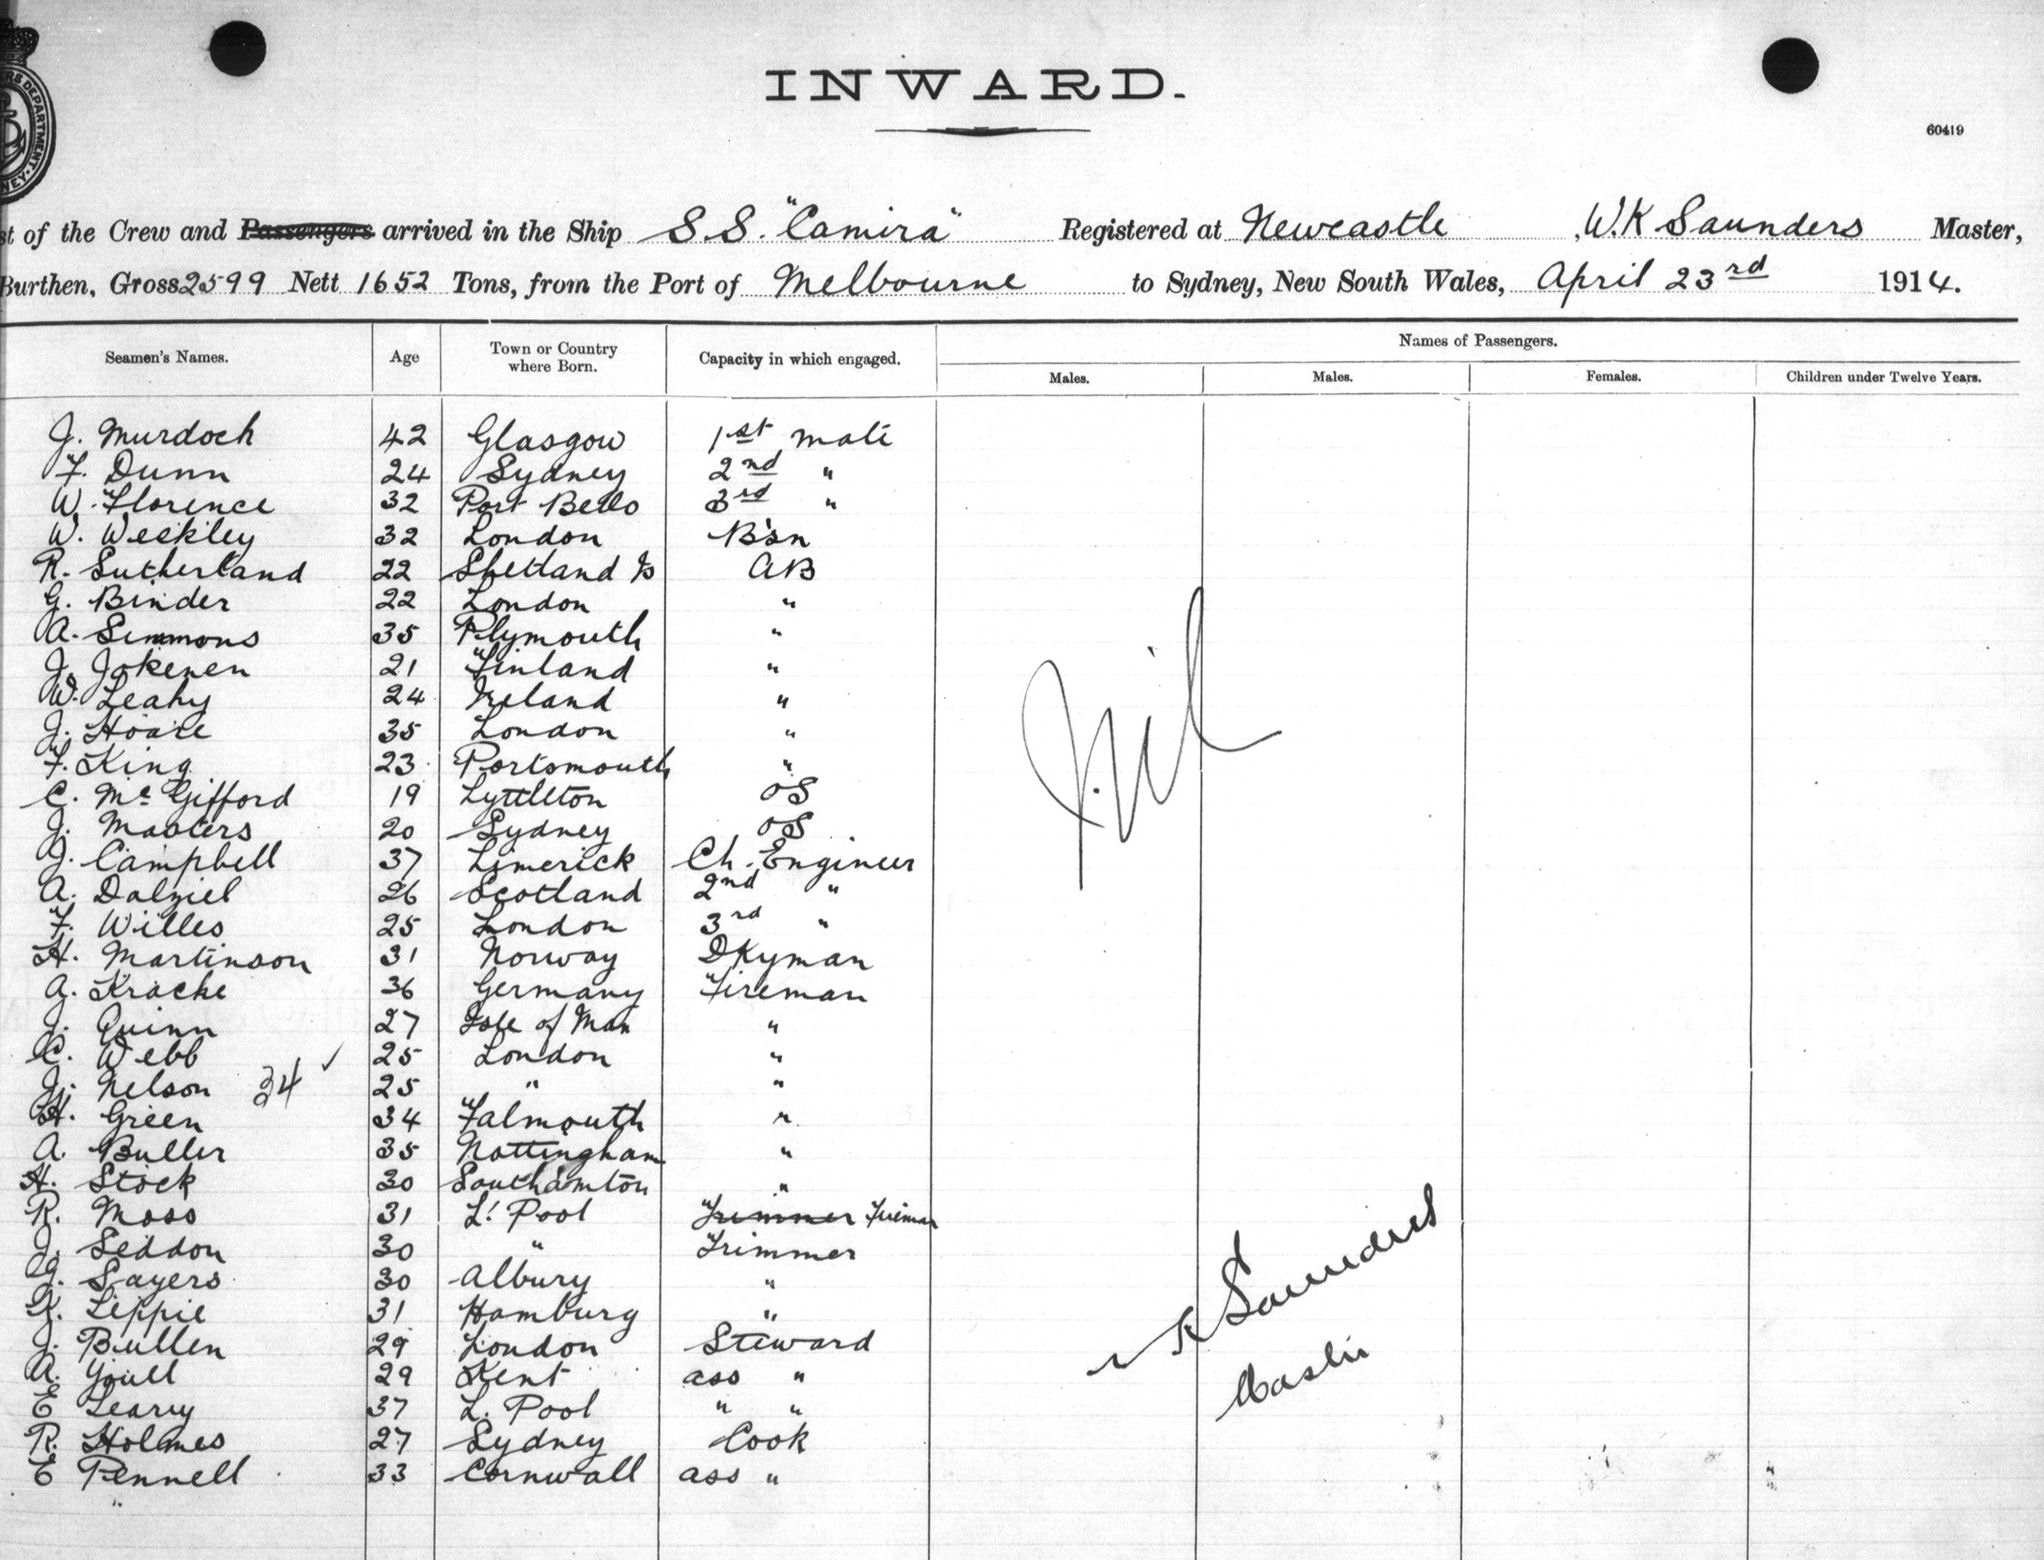 INWARD.
60419
RS DEPARTMENT.
NEY.
st of the Crew and Passengers arrived in the Ship S.S. "Camira" Registered at Newcastle, W.K Saunders Master,
Burthen, Gross 2599 Nett 1652 Tons, from the Port of Melbourne to Sydney, New South Wales, April 23rd 1914.
Seamen's Names. Age Town or Country where Born. Capacity in which engaged. Names of Passengers.
Males. Males. Females. Children under Twelve Years.
J. Murdoch 42 Glasgow 1st Mate
F. Dunn 24 Sydney 2nd "
W. Florence 32 Port Bello 3rd "
W. Weekley 32 London B'sn
R. Sutherland 22 Shetland Is AB
G. Binder 22 London "
A. Simmons 35 Plymouth "
J. Jokenen 21 Finland "
W. Leahy 24 Ireland "
J. Hoare 35 London "
F. King 23 Portsmouth "
C. Mc Gifford 19 Lyttleton OS
J. Masters 20 Sydney OS
J. Campbell 37 Limerick Ch. Engineer
A. Dalziel 26 Scotland 2nd "
F. Willes 25 London 3rd "
H. Martinson 31 Norway DKyman
A. Kracke 36 Germany Fireman
J. Quinn 27 Isle of Man "
C. Webb 25 London "
J. Nelson 34 25 " "
H. Green 34 Falmouth "
A. Buller 35 Nottingham "
H. Stock 30 Southamton "
R. Moss 31 L'Pool Trimmer Fireman
J. Seddon 30 " Trimmer
J. Sayers 30 Albury "
K. Leppie 31 Hamburg "
J. Bullen 29 London Steward
A. Youll 29 Kent ass "
E Leary 37 L. Pool " "
R. Holmes 27 Sydney Cook
E Pennell 33 Cornwall ass "
Nil
K Saunders
Master